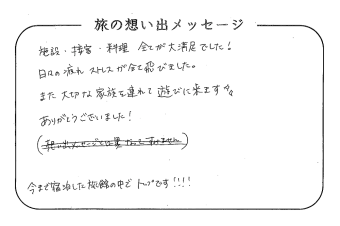 旅の想い出メッセージ
施設・接客・料理 全てが大満足でした!
日々の疲れ ストレスが全て飛びました。
また大切な家族を連れて遊びに来ますね
ありがとうございました!
今まで宿泊した旅館の中でトップです!!!!